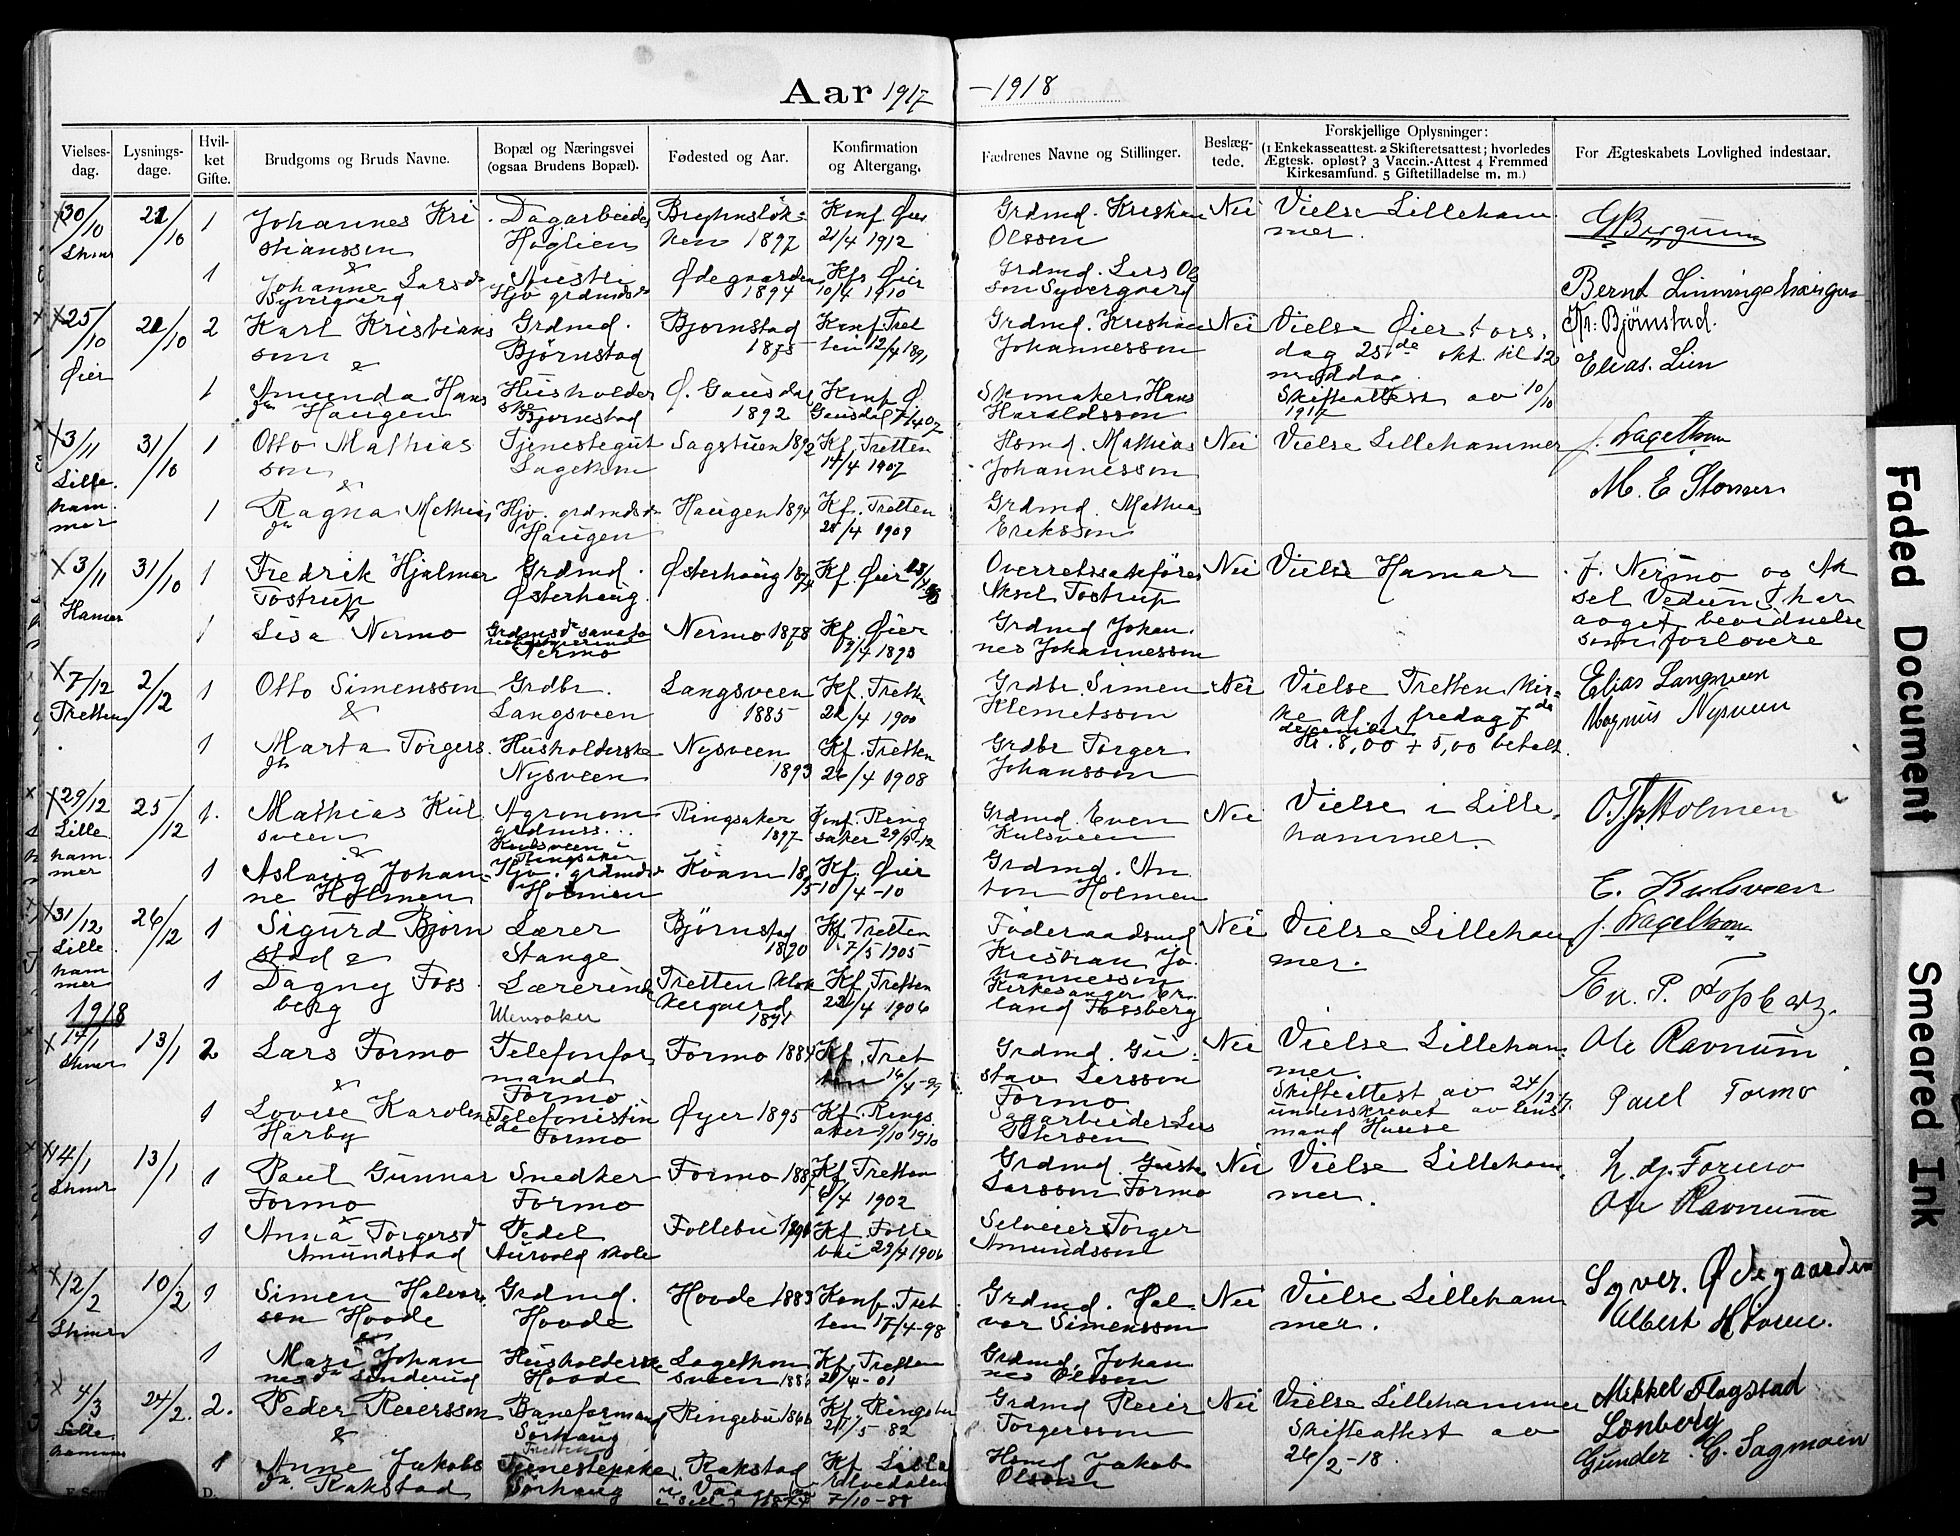 Aar 1917 - 1918
Vielses-
dag.
Lysnings-
dage.
Hvil-
ket
Gifte.
Brudgoms og Bruds Navne.
Bopæl og Næringsvei
(ogsaa Brudens Bopæl).
Fødested og Aar.
Konfirmation
og Altergang.
Fædrenes Navne og Stillinger.
Beslæg-
tede.
Forskjellige Oplysninger:
(1 Enkekasseattest. 2 Skifteretsattest; hvorledes
Ægtesk. opløst? 3 Vaccin.-Attest 4 Fremmed
Kirkesamfund. 5 Giftetilladelse m. m.)
For Ægteskabets Lovlighed indestaar.
30/10
21/10
1
Johannes Kri
stianssen
&
Dagarbeider
Høglien
1897
Konf. Øier
21/4 1912
Grdmd. Kristian
Olsson
Nei
Vielse Lilleham
mer.
1
Johanne Larsdr
Syvergaard
Hjv grdmdsdr
Ødegaarden
1894
Kfr Øier
10/4 1910
Grdmd. Lars Ol
son Syvergaard
25/10
Øier
21/10
2
Karl Kristians
son
&
Grdmd.
Bjørnstad
Bjørnstad
1875
Konf. Tret
ten 12/4 1891
Grdmd. Kristian
Johannesson
Nei
Vielse Øier tors.
dag 25de okt. kl 12
middag.
Skifteattest av 10/10
1917
Bjørnstad.
Elias. Lien
1
Amunda Hans
dtr Haugen
Husholder
ske
Bjørnstad
Ø. Gausdal
1892
Konf. Ø.
Gausdal 7/4 07
Skomaker Hans
Haraldsson
3/11
Lille.
ham
mer
31/10
1
Otto Mathias
son
&
Tjenestegut
Sagstuen 1892
Kf. Tretten
14/4 1907
Hsmd. Mathias
Johannesson
Nei
Vielse Lillehammer
1
Ragna Mathias
dtr
Hjv. grdmdsdr
Haugen
Haugen 1894
Kf. Tretten
25/4 1909
Grdmd. Mathias
Eriksson
3/11
Hamar
31/10
1
Fredrik Hjalmar
Tostrup
Grdmd.
Østerhaug.
Østerhaug
Kf. Øier
Overretssakfører
Aksel Tostrup
Nei
Vielse Hamar
J. Nermo og Ak
sel Vedum har
avgit bevidnelse
som forlovere
1
Lisa Nermo
Nermo
Nermo 1878
Kf. Øier
1893
Grdmd Johan.
nes Johannesson
7/12
Tretten
2/12
1
Otto Simensson
&
Grdbr.
Langsveen
Langsveen
1885
Kf. Tretten
22/4 1900
Grdbr Simen
Klemetsson
Nei
Vielse Tretten kir-
ke kl. 1 fredag 7de
december
Kr. 8,00 + 5,00 betalt.
Elias Langsveen
Magnus Nysveen
1
Marta Torgers
dtr
Husholderske
Nysveen
Nysveen
1893
Kf. Tretten
26/4 1908
Grdbr Torger
Johansson
29/12
Lille
ham
mer
25/12
1.
Mathias Kul
sveen
&
Agronom
Kulsveen i
Ringsaker
Ringsaker
1897
Konf. Ring
saker 29/9-12
Grdmd. Even
Kulsveen
Nei
Vielse i Lille.
hammer.
Holmen
1
Aslaug Johan-
ne Holmen
Hjv. grdmdsdr
Holmen
Kvam
Kf. Øier
10/4-10
Grdmd. An
ton Holmen
E. Kulsveen
31/12
Lille
ham
mer
26/12
1
Sigurd Bjørn
stad &
Lærer
Stange
Bjørnstad
1890
Kf. Tretten
7/5 1905
Føderaadsmd
Kristian Jo.
hannesson
Nei
Vielse Lilleham
mer.
1
Dagny Foss
berg
Lærerinde
Ullensaker
Tretten klok
kergaard
1891
Kf. Tretten
22/4 1906
Kirkesanger Er.
land Fossberg
1918
13/1
2
Lars Formo
&
Telefonfor
mand
Formo
Formo 1884
Kf. Tret
ten 16/4-99
Grdmd. Gu-
stav Larsson
Formo
Nei
Vielse Lilleham-
mer.
Skifteattest av 24/12 17.
underskrevet av lens
mand Huuse
Ole Ravnum
Paul Formo
1
Lovise Karoline
Hårby
Telefonistin
de Formo
Øyer 1895
Kf. Rings
aker 9/10 1910
Sagarbeider Lars
Petersen
14/1
13/1
1
Paul Gunnar
Formo
&
Snedker
Formo
Formo 1887
Kf. Tretten
6/4 1902
Grdmd. Gustav
Larsson Formo
Nei
Vielse Lilleham.
mer.
Formo
Ole Ravnum
1
Anna Torgersdr
Amundstad
Pedel
Aurvold skole
Follebu
Kf. Folle
bu 29/4 1906
Selveier Torger
Amundsson
12/2
10/2
1
Simen Halvor.
son Hovde
&
Grdmd.
Hovde
Hovde 1883
Konf. Tret
ten 17/4-98
Grdmd. Hal-
vor Simensson
Nei
Vielse Lilleham
mer.
Syver. Ødegaarden
Albert
1
Mari Johan
nesdr Sønderud
Husholderske
Hovde
Kf. Tretten
21/4-01
Grdmd. Johan
nes Olsson
4/3
Lille.
hammer
24/2.
2.
Peder Reiersson
&
Baneformand
Sørhaug
Tretten
Ringebu 1866
Kf. Ringebu
21/5 82
Grdmd Reier
Torgersson
Nei
Vielse Lillehammer
Skifteattest av
26/2-18.
Mikkel Flagstad
Lønberg
Gunder E. Sagmoen
1
Anne Jakobs
dtr. Rakstad
Tjenestepike
Sørhaug
Rakstad
Kf. Lille
Elvedalen
7/10-88
Hsmd Jakob
Olsson
Faded Document
Smeared Ink